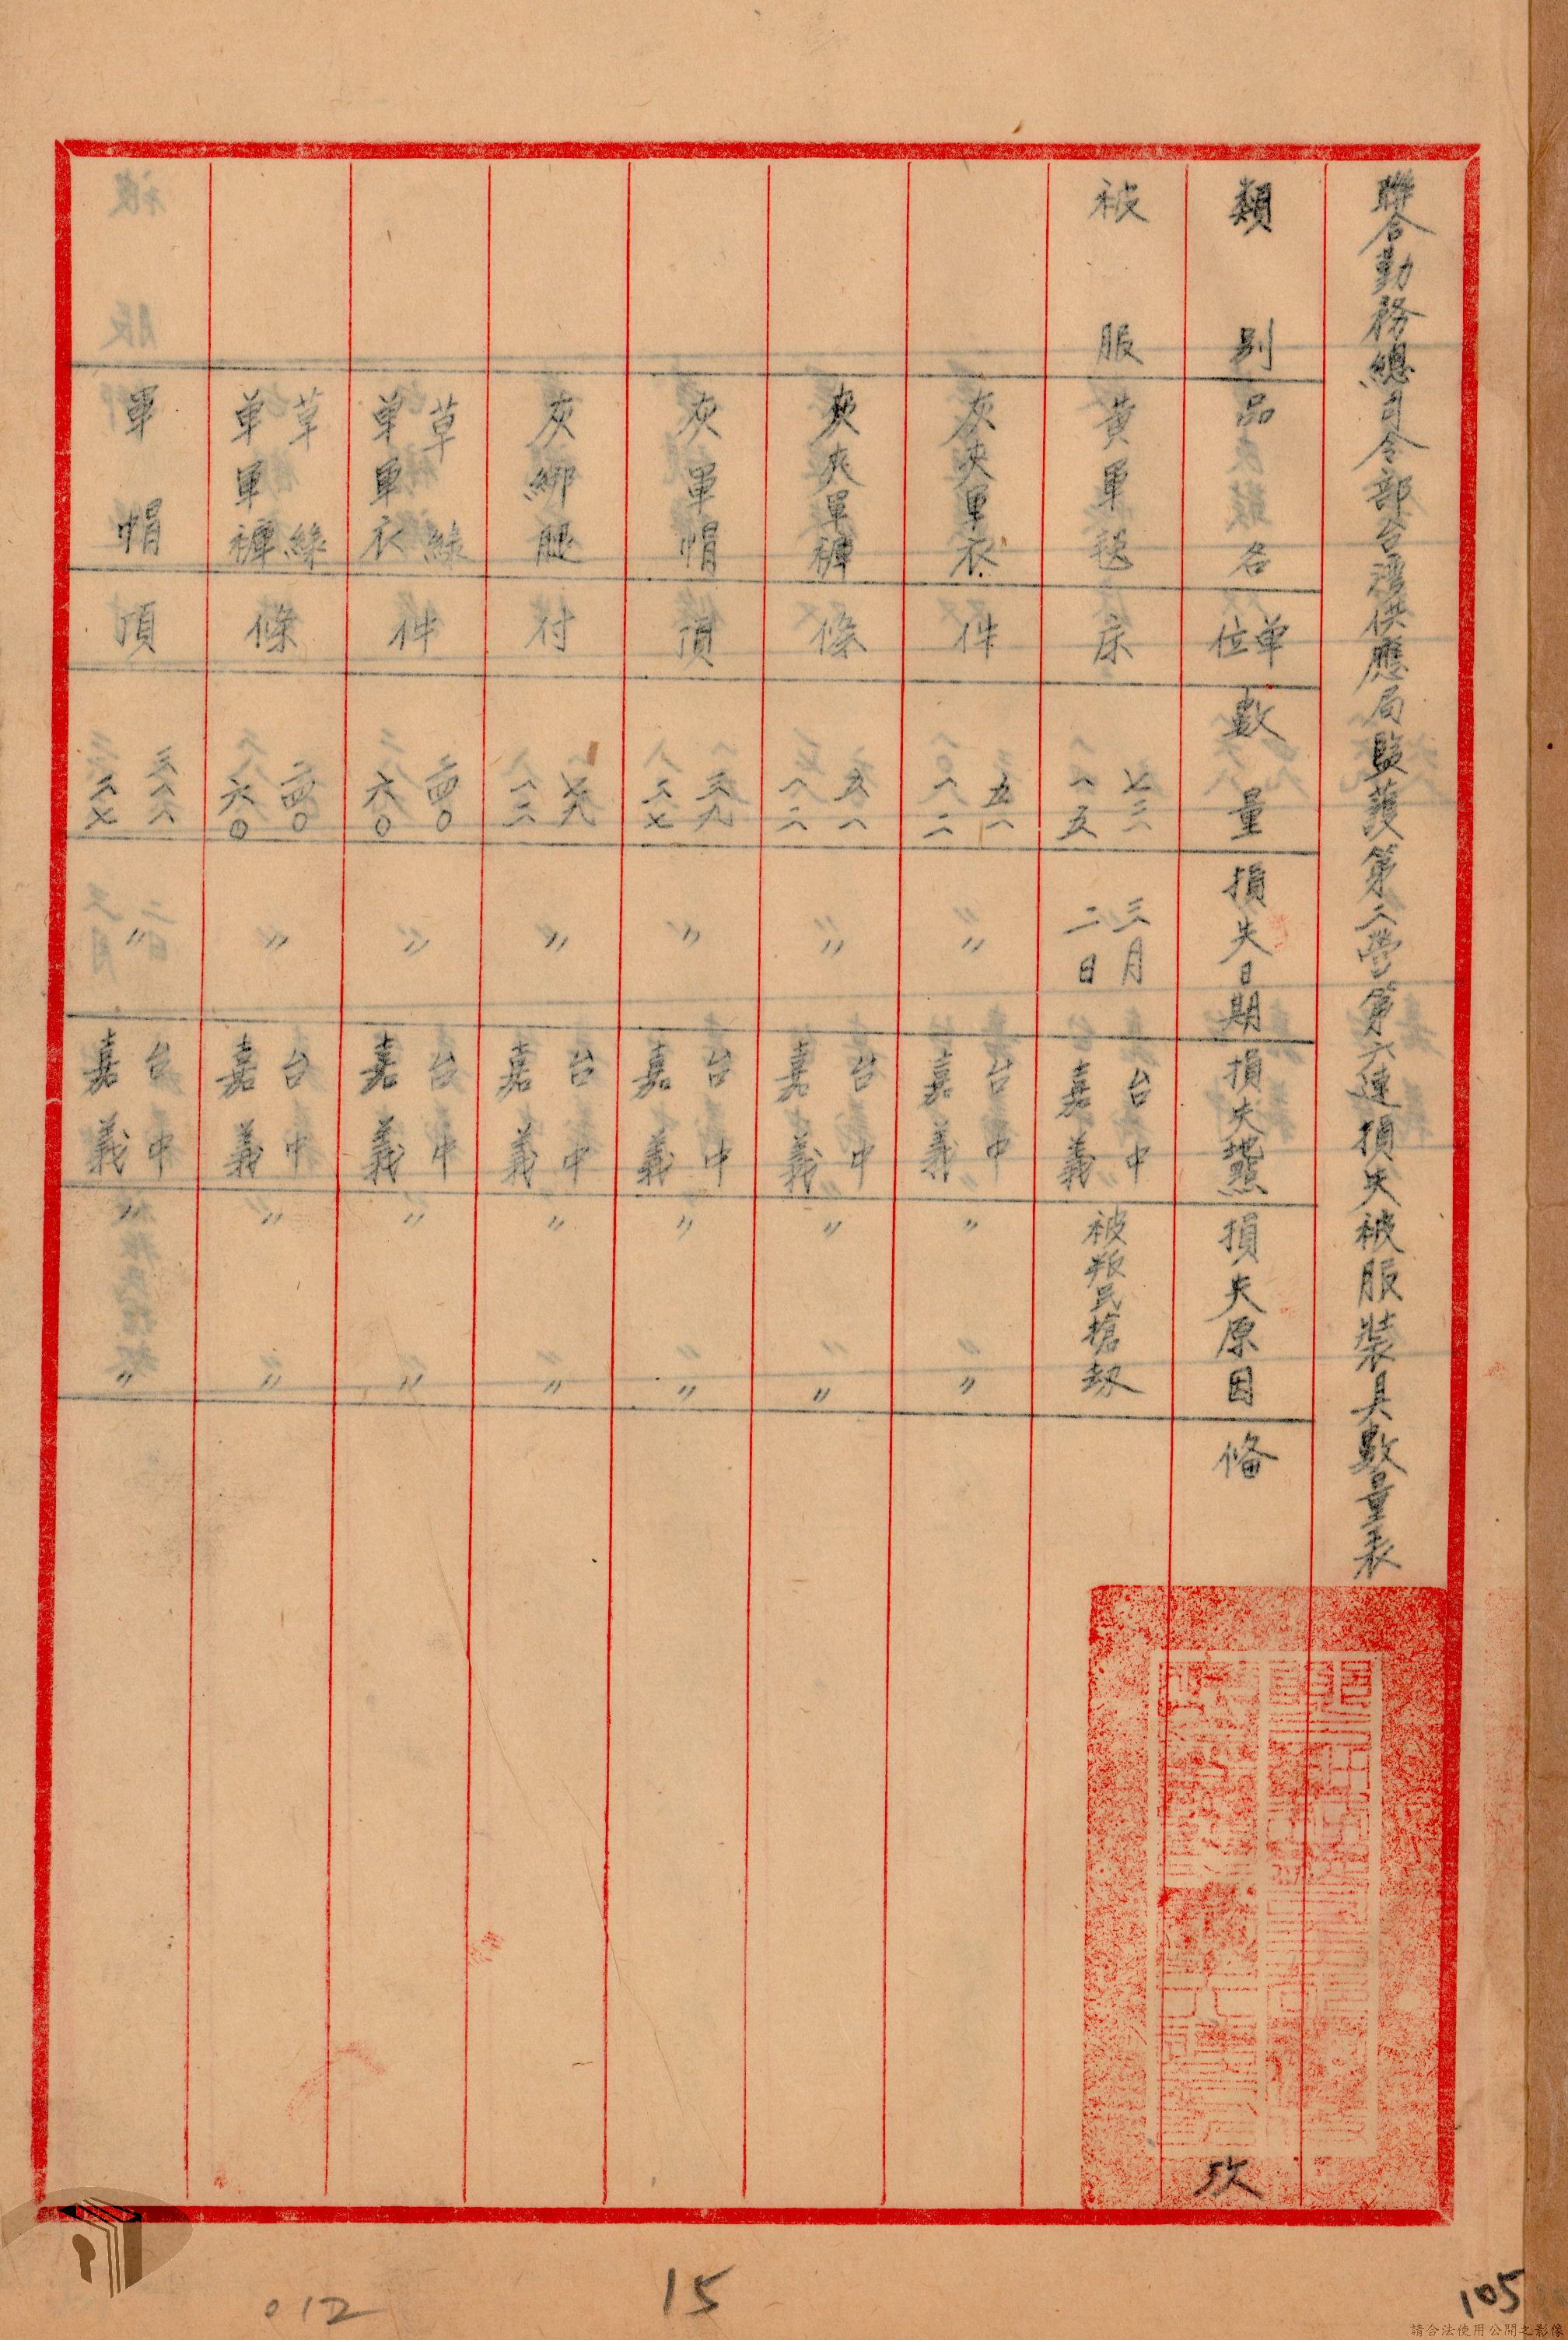 聯合勤務總司令部台灣供應局監護第二營第六連損失被服裝具數量表
類別 品名 单位 數量 損失日期 損失地點 損失原因 備攷
被服 黃軍毯 床 七三 一五 三月二日 台中 嘉義 被叛民搶劫
灰夾軍衣 件 五一 一二 〃 台中 嘉義 〃 〃
灰夾軍褲 條 〃 台中 嘉義 〃 〃
灰軍帽 頂 三九 二七 〃 台中 嘉義 〃 〃
灰綁腿 付 七九 〃 台中 嘉義 〃 〃
草綠单軍衣 件 二四〇 六〇 〃 台中 嘉義 〃 〃
草綠单軍褲 條 二四〇 六〇 〃 台中 嘉義 〃 〃
軍帽 頂 〃 台中 嘉義 〃 〃
012
15
105
請合法使用公開之影像